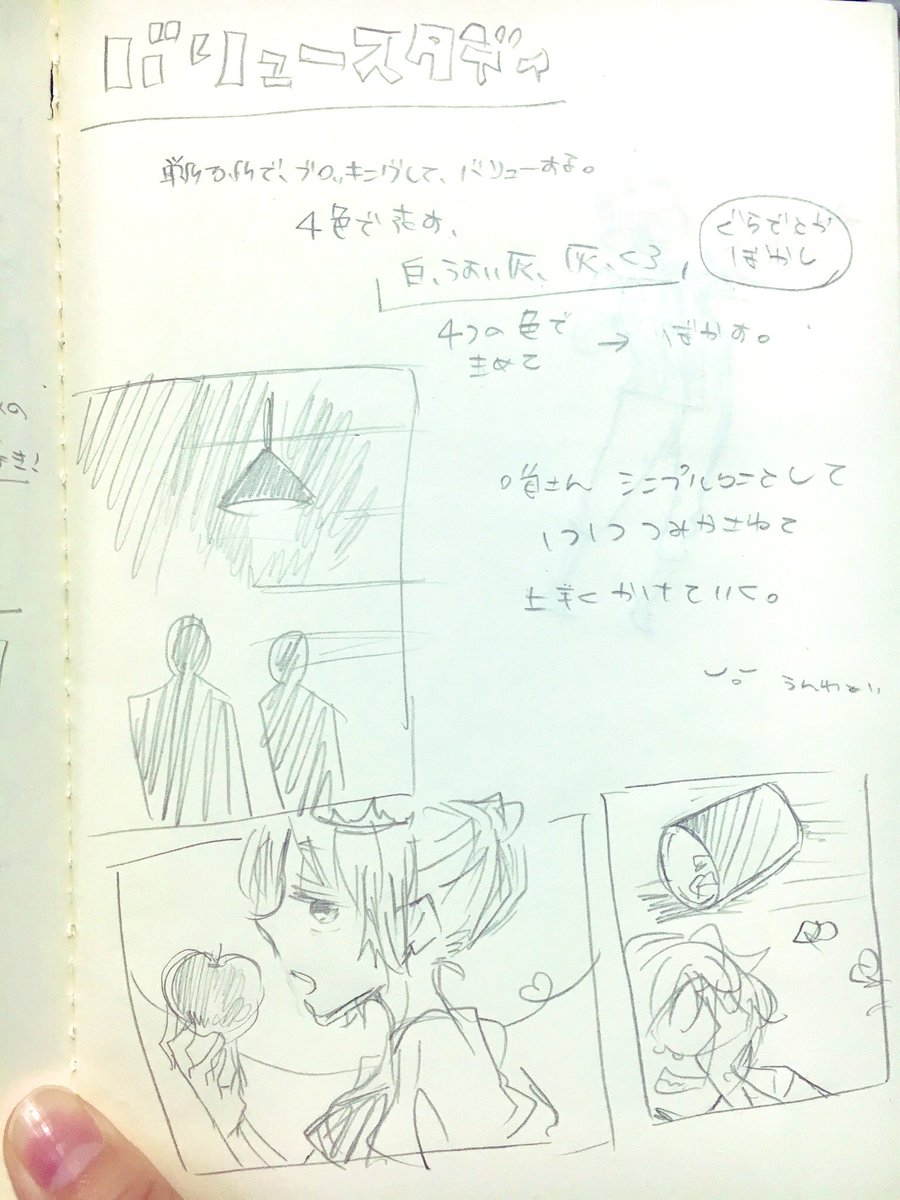 バリュースタディ
単純な形で、ブロッキングして、バリューする。
4色で表す、
白、うすい灰、灰、くろ
ぐらでとか
ぼかし
4つの色で
まとめて
→ ぼかす。
シンプルなことして
1つ1つつみかさねて
上手くかけていく。